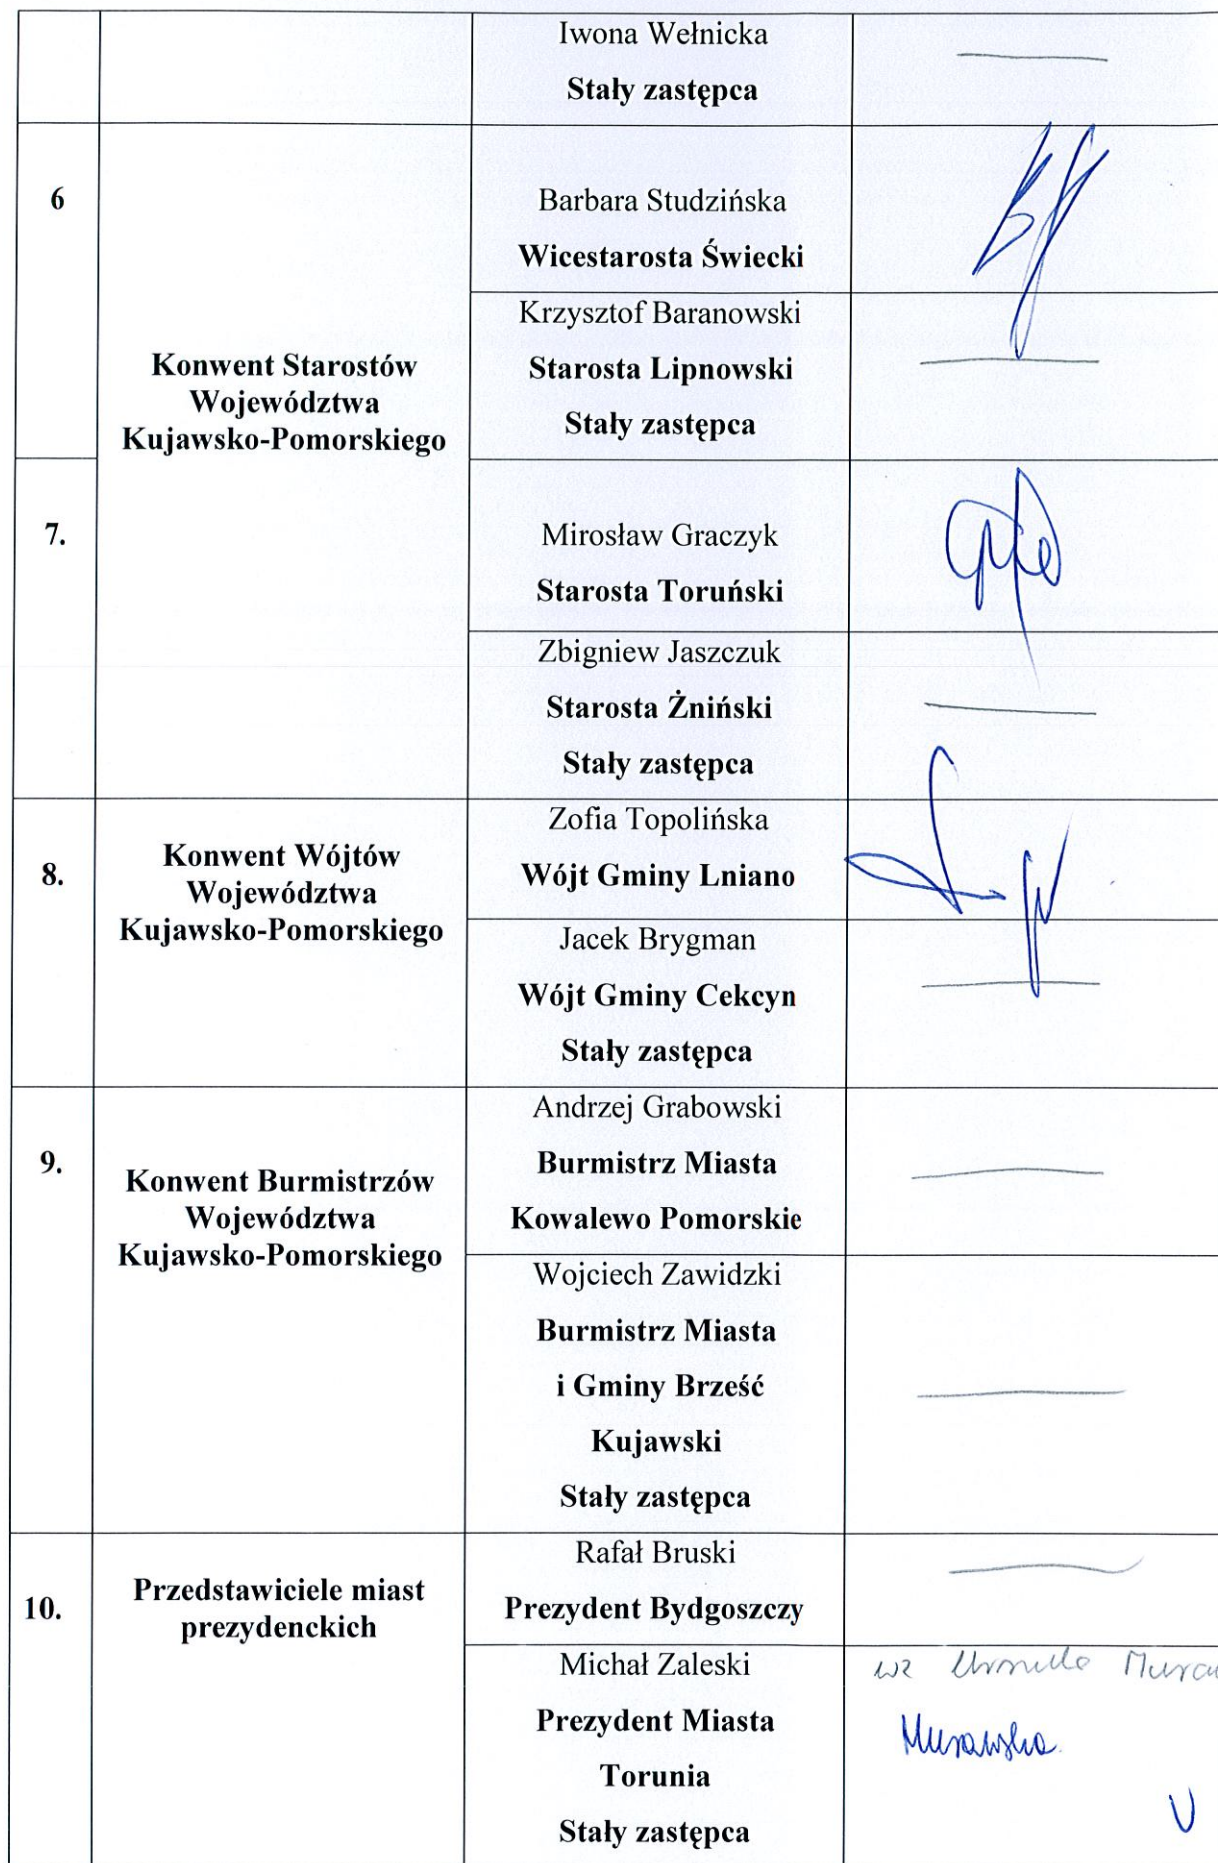 Iwona Wełnicka
Stały zastępca
6
Konwent Starostów
Województwa
Kujawsko-Pomorskiego
Barbara Studzińska
Wicestarosta Świecki
Krzysztof Baranowski
Starosta Lipnowski
Stały zastępca
7.
Mirosław Graczyk
Starosta Toruński
Zbigniew Jaszczuk
Starosta Żniński
Stały zastępca
8.
Konwent Wójtów
Województwa
Kujawsko-Pomorskiego
Zofia Topolińska
Wójt Gminy Lniano
Jacek Brygman
Wójt Gminy Cekcyn
Stały zastępca
9.
Konwent Burmistrzów
Województwa
Kujawsko-Pomorskiego
Andrzej Grabowski
Burmistrz Miasta
Kowalewo Pomorskie
Wojciech Zawidzki
Burmistrz Miasta
i Gminy Brześć
Kujawski
Stały zastępca
10.
Przedstawiciele miast
prezydenckich
Rafał Bruski
Prezydent Bydgoszczy
Michał Zaleski
Prezydent Miasta
Torunia
Stały zastępca
wz
Murawska